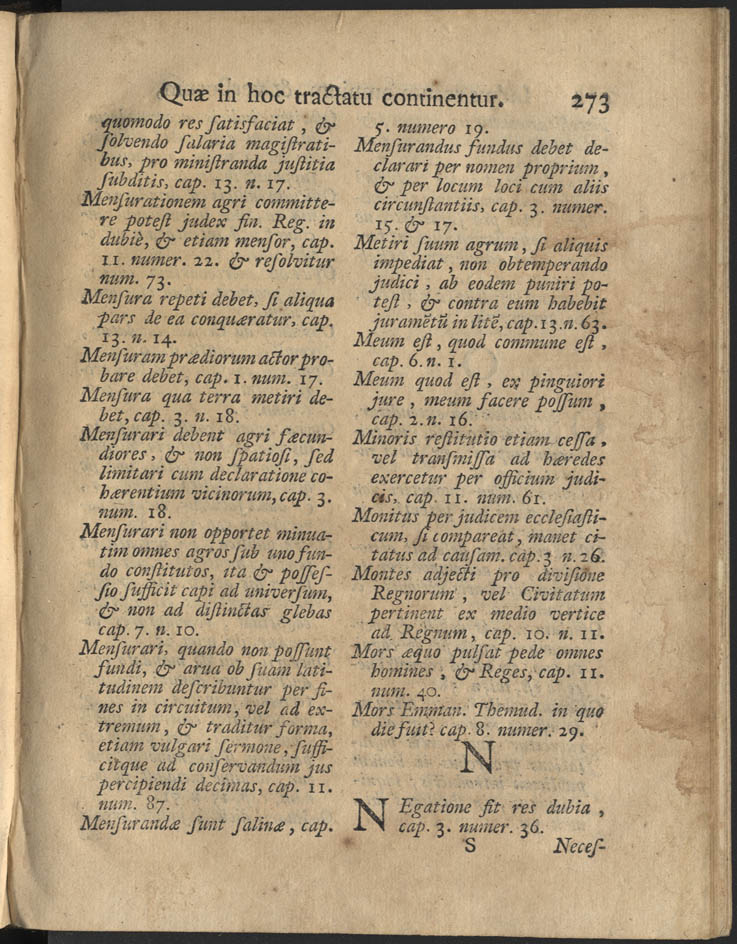 Quæ in hoc tractatu continentur. 273
quomodo res ſatisfaciat, &
ſolvendo ſalaria magiſtrati-
bus, pro miniſtranda juſtitia
ſubditis, cap. 13. n. 17.
Menſurationem agri committe-
re poteſt judex fin. Reg. in
dubiè, & etiam menſor, cap.
11. numer. 22. & reſolvitur
num. 73.
Menſura repeti debet, ſi aliqua
pars de ea conquæratur, cap.
13. n. 14.
Menſuram prædiorum actor pro-
bare debet, cap. 1. num. 17.
Menſura qua terra metiri de-
bet, cap. 3. n. 18.
Menſurari debent agri fæcun-
diores, & non ſpatioſi, ſed
limitari cum declaratione co-
hærentium vicinorum, cap. 3.
num. 18.
Menſurari non opportet minua-
tim omnes agros ſub uno fun-
do conſtitutos, ita & poſſeſ-
ſio ſufficit capi ad univerſum,
& non ad diſtinctas glebas
cap. 7. n. 10.
Menſurari, quando non poſſunt
fundi, & arua ob ſuam lati-
tudinem deſcribuntur per fi-
nes in circuitum, vel ad ex-
tremum, & traditur forma,
etiam vulgari ſermone, ſuffi-
citque ad conſervandum jus
percipiendi decimas, cap. 11.
num. 87.
Menſurandæ ſunt ſalinæ, cap.
5. numero 19.
Menſurandus fundus debet de-
clarari per nomen proprium,
& per locum loci cum aliis
circunſtantiis, cap. 3. numer.
15. & 17.
Metiri ſuum agrum, ſi aliquis
impediat, non obtemperando
judici, ab eodem puniri po-
teſt, & contra eum habebit
juramẽtũ in litẽ, cap. 13. n. 63.
Meum eſt, quod commune eſt,
cap. 6. n. 1.
Meum quod eſt, ex pinguiori
jure, meum facere poſſum,
cap. 2. n. 16.
Minoris reſtitutio etiam ceſſa,
vel tranſmiſſa ad hæredes
exercetur per officium judi-
cis, cap. 11. num. 61.
Monitus per judicem eccleſiaſti-
cum, ſi compareat, manet ci-
tatus ad cauſam. cap. 3 n. 26.
Montes adjecti pro diviſione
Regnorum, vel Civitatum
pertinent ex medio vertice
ad Regnum, cap. 10. n. 11.
Mors æquo pulſat pede omnes
homines, & Reges, cap. 11.
num. 40.
Mors Emman. Themud. in quo
die fuit? cap. 8. numer. 29.
N
NEgatione fit res dubia,
cap. 3. numer. 36.
S Neceſ-